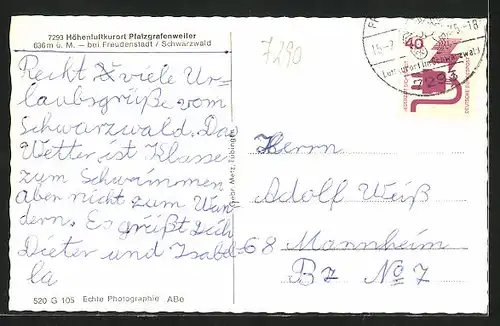 7293 Höhenluftkurort Pfalzgrafenweiler
636 m ü. M. — bei Freudenstadt / Schwarzwald
Recht viele Ur-
laubsgrüße vom
Schwarzwald. Das
Wetter ist Klasse
zum Schwimmen
aber nicht zum Wan
dern. Es grüßt Dich
Dieter und Isabel-
la
520 G 105 Echte Photographie ABe
Gebr. Metz, Tübingen
7290
Luftkurort im Schwarzwald
7293
40
DEUTSCHE BUNDESPOST
Herrn
Adolf Weiß
68 Mannheim
B7 No 7